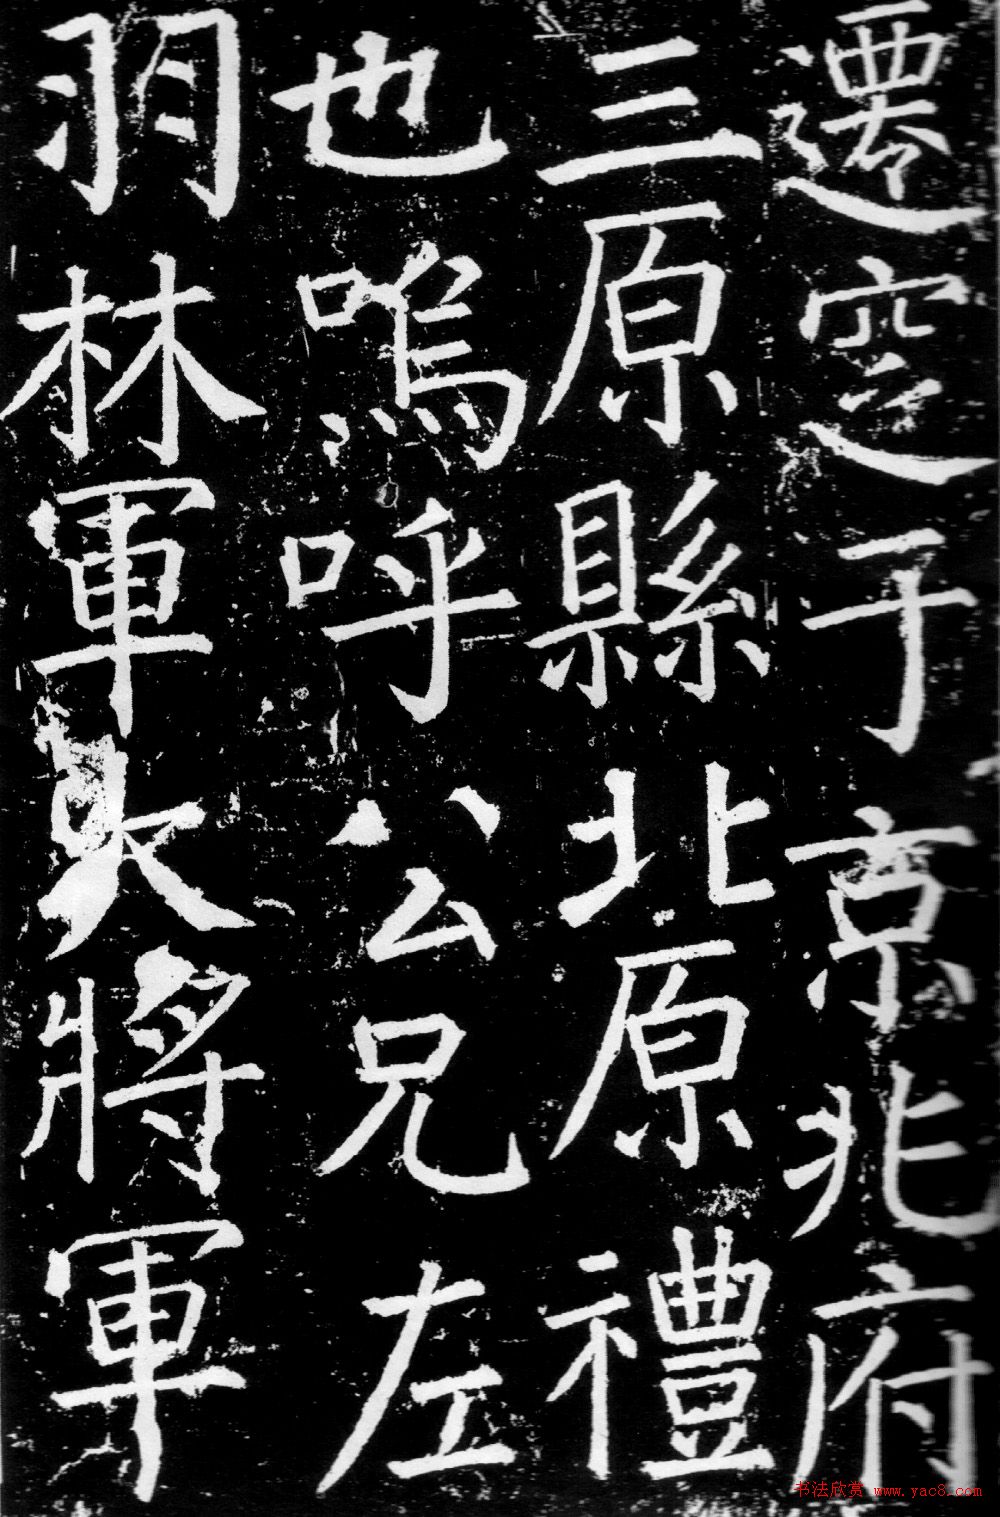 遷窆于京兆府
三原縣北原禮
也嗚呼公兄左
羽林軍大將軍
书法欣赏 www.yac8.com